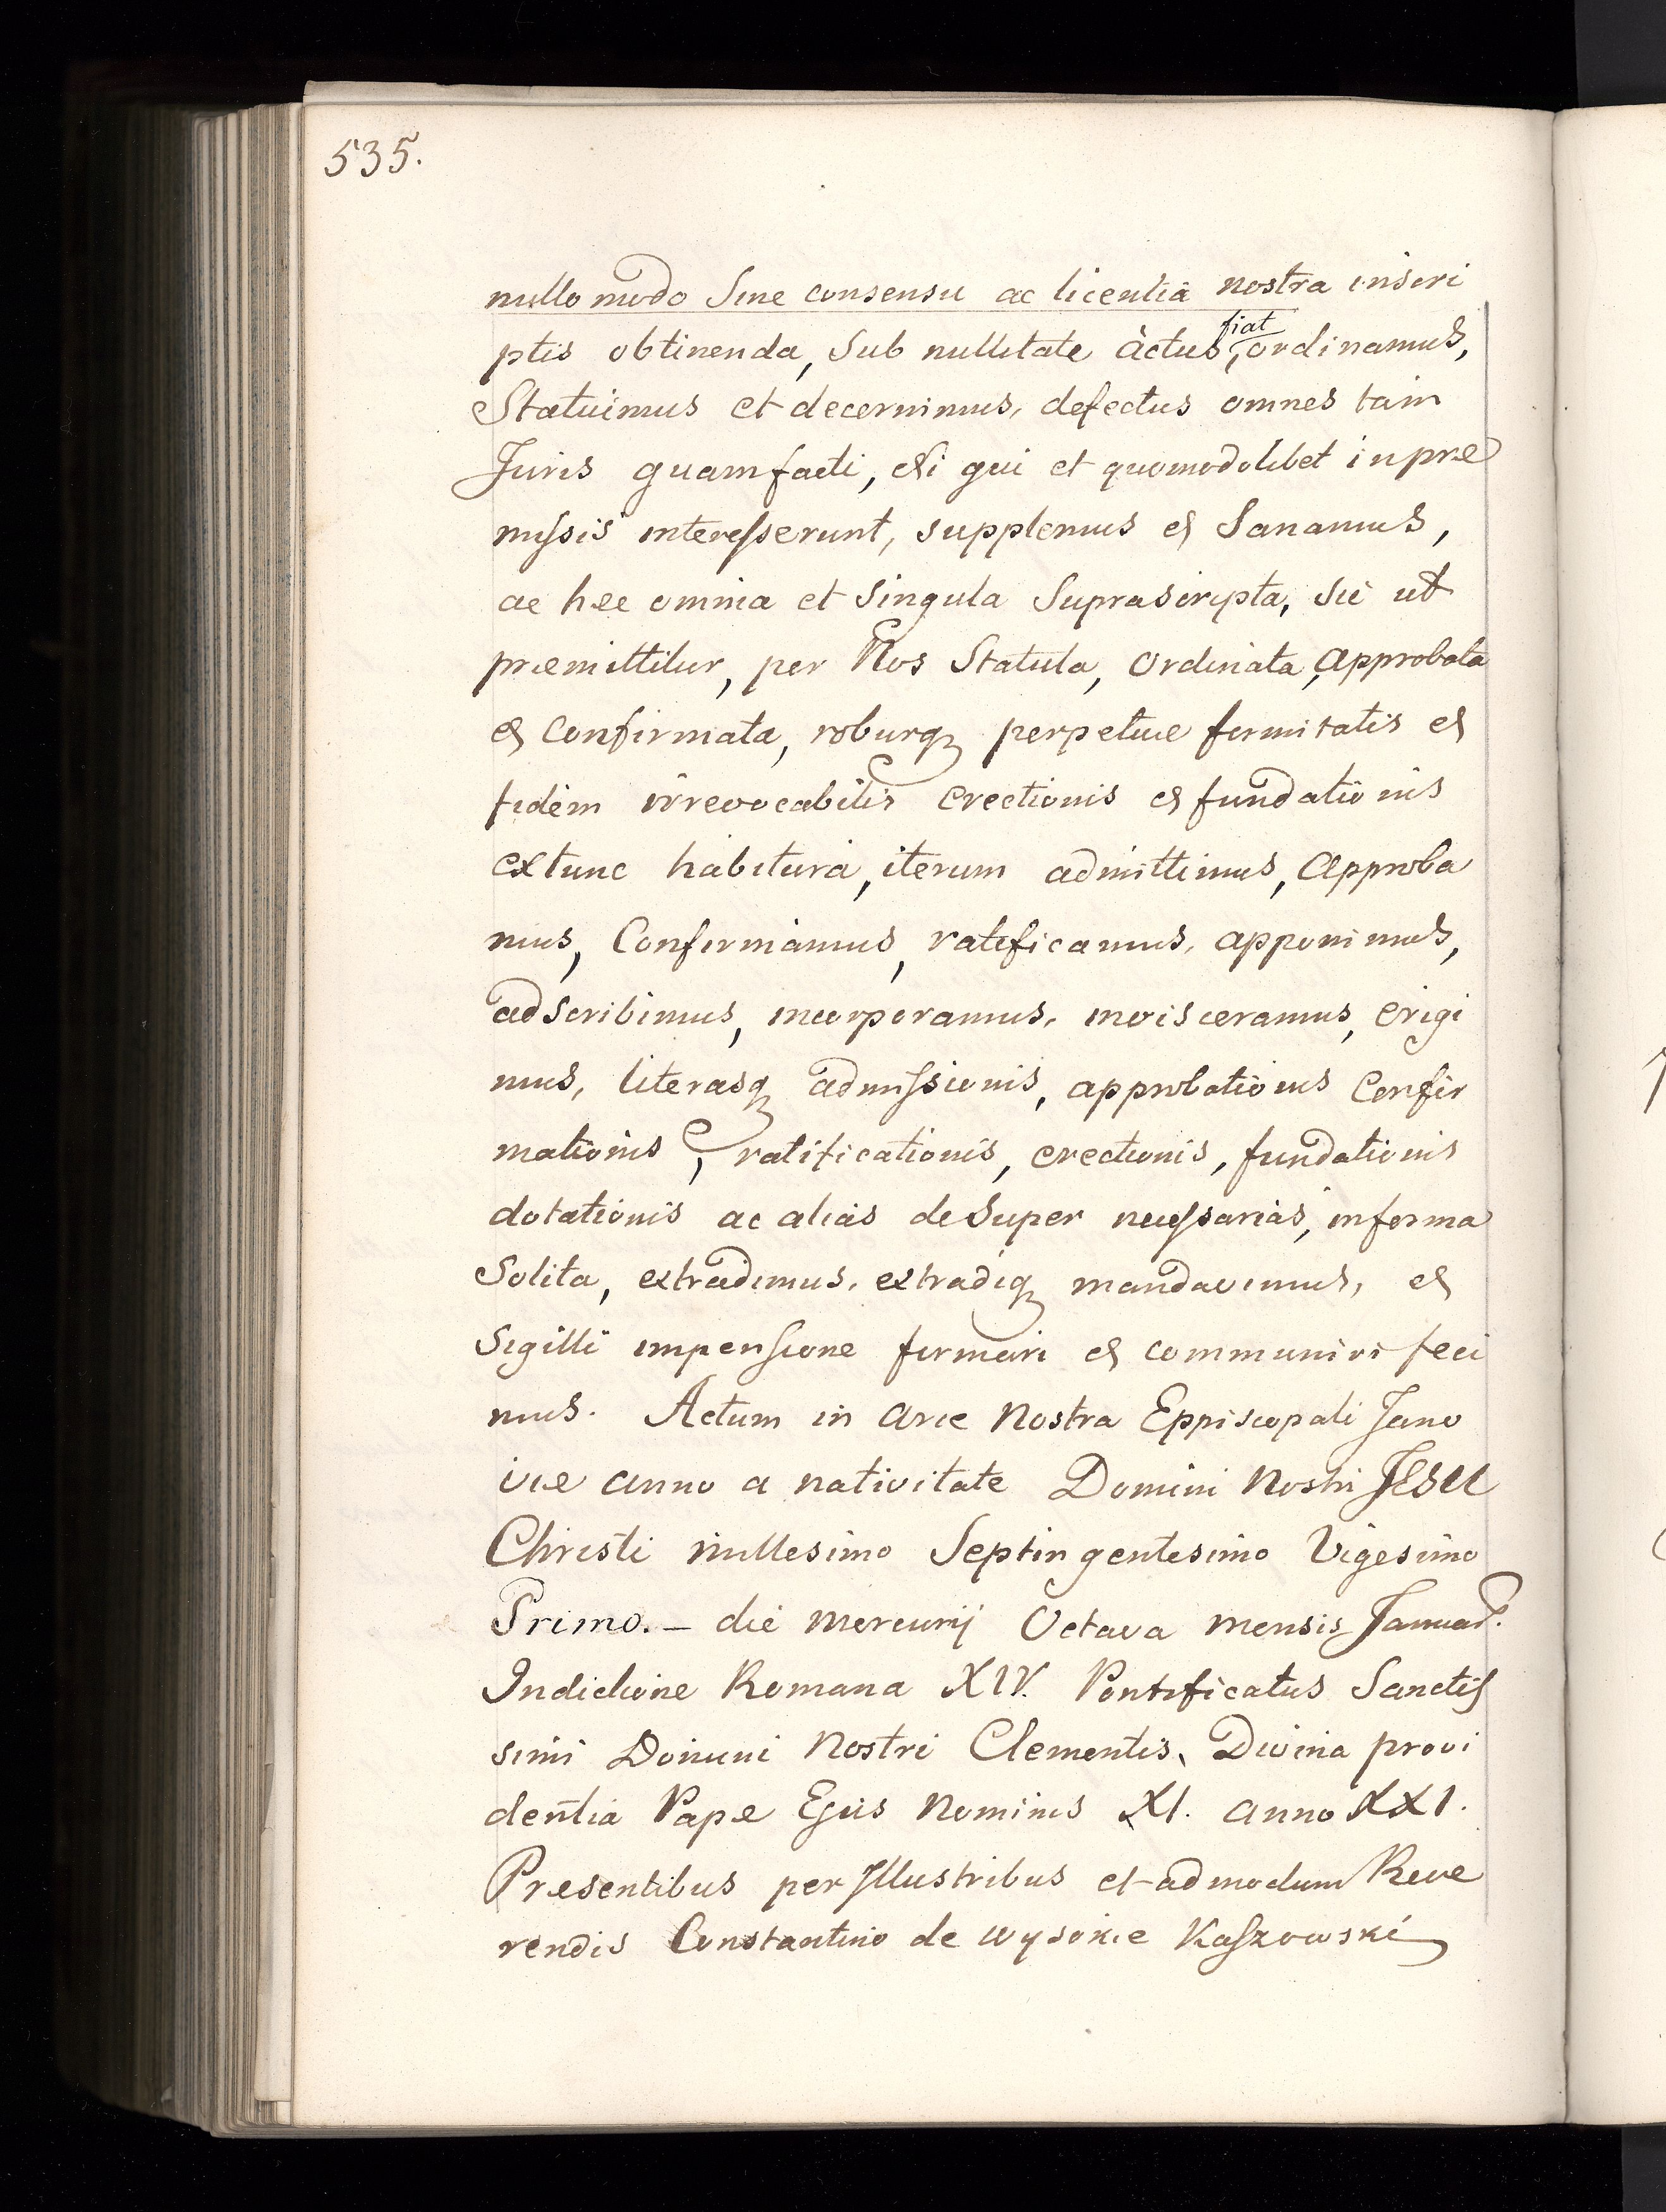 535.
nullo modo Sine consensu ac licentia nostra inscri
ptis obtinenda, Sub nullitate actus fiat, ordinamus,
Statuimus et decernimus, defectus omnes tam
Juris quam facti, Si qui et quomodolibet in præ
missis interesserunt, supplemus et Sanamus,
ac hæc omnia et Singula Suprascripta, Sic ut
præmittitur, per Nos Statuta, ordinata, approbata
et Confirmata, roburq perpetuæ firmitatis et
fidem irrevocabilis erectionis et fundationis
ex tunc habitura, iterum admittimus, Approba
mus, Confirmamus, ratificamus, apponimus,
adscribimus, incorporamus, invisceramus, erigi
mus, literasq admissionis, approbationis Confir
mationis, ratificationis, erectionis, fundationis
dotationis ac alias deSuper necessarias, in forma
Solita, extradimus, extradiq mandavimus, et
Sigilli impensione firmari et communiri feci
mus. Actum in arce Nostra Eppiscopali Jano
viæ anno a nativitate Domini Nostri JESU
Christi millesimo Septingentesimo Vigesimo
Primo. – die Mercurij Octava mensis Januar.
Indictione Romana XIV. Pontificatus Sanctis
simi Domini Nostri Clementis, Divina provi
dentia Papæ Ejus Nominis XI. anno XXI.
Præsentibus per Illustribus et admodum Reve
rendis Constantino de Wysokie Kaszowski